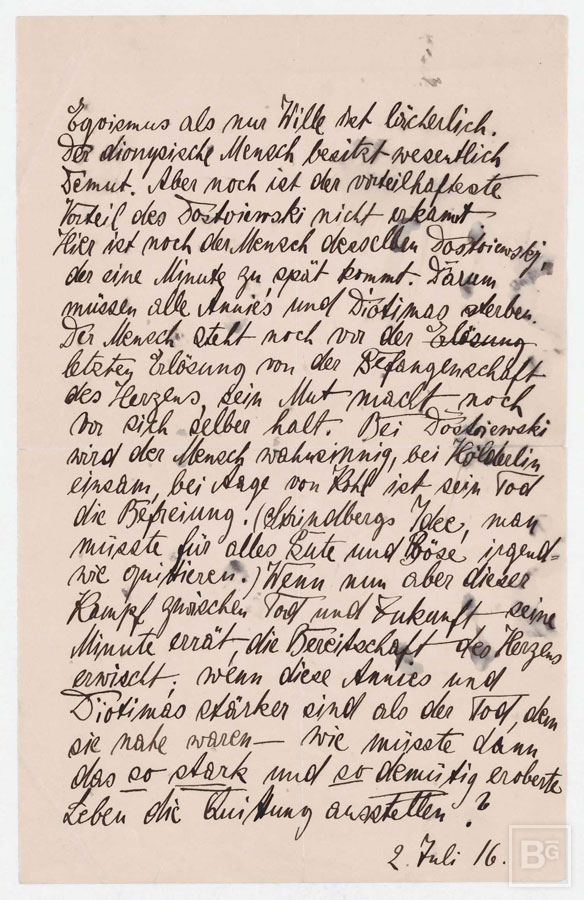 Egoismus als nur Wille ist lächerlich.
Der dionysische Mensch besitzt wesentlich
Demut. Aber noch ist der vorteilhafteste
Vorteil des Dostoiewski nicht erkannt
Hier ist noch der Mensch desselben Dostoiewski,
der eine Minute zu spät kommt. Darum
müssen alle Annies und Diotimas sterben.
Der Mensch steht noch vor der Erlösung
letzten Erlösung von der Befangenschaft
des Herzens, sein Mut macht noch
vor sich selber halt. Bei Dostoiewski
wird der Mensch wahnsinnig, bei Hölderlin
einsam, bei Aage von Kohl ist sein Tod
die Befreiung. (Strindbergs Idee, man
müsste für alles Gute und Böse irgend=
wie quittieren.) Wenn nun aber dieser
Kampf zwischen Tod und Zukunft seine
Minute errät, die Bereitschaft des Herzens
erwischt; wenn diese Annies und
Diotimas stärker sind als der Tod, dem
sie nahe waren — wie müsste dann
das so stark und so demütig eroberte
Leben die Quittung ausstellen?
2. Juli 16.
BG